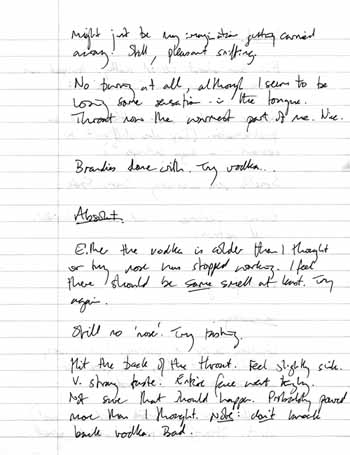 Might just be my imagination getting carried
away. Still, pleasant sniffing.
No burning at all, although I seem to be
losing some sensation in the tongue.
Throat now the warmest part of me. Nice.
Brandies done with. Try vodka..
Absolut.
Either the vodka is colder than I thought
or my nose has stopped working. I feel
there should be some smell at least. Try
again.
Still no 'nose'. Try tasting.
Hit the back of the throat. Feel slightly sick.
V. strong taste. Entire face went tingly.
Not sure that should happen. Probably poured
more than I thought. Note: don't knock
back vodka. Bad.